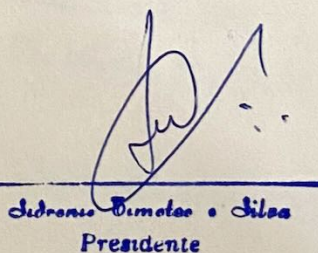 Sidronio Timoteo e Silva
Presidente